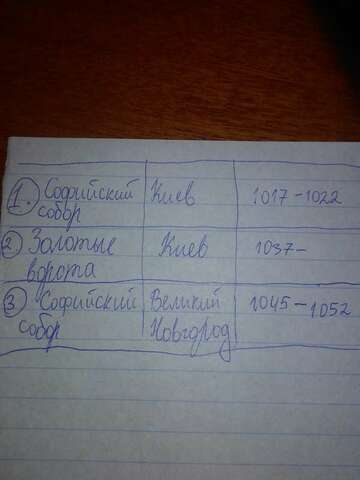 1. Софийский собор Киев 1017-1022
2 Золотые ворота Киев 1037-
3 Софийский собор Великий Новгород 1045-1052